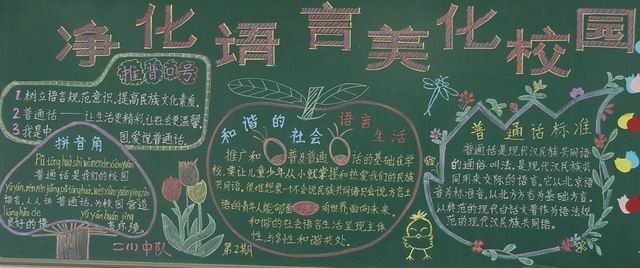 净化语言美化校园
推普口号
1. 树立语言规范意识,提高民族文化素质。
2. 普通话——让生活更精彩,让社会更温馨。
3. 我是中国 爱说普通话
拼音角
Pǔ tōng huà shì wǒ men de xiào yuán
普通话是我们的校园
yǔ yán, rén rén jiǎng pǔ tōng huà, wèi xiào yuán yíng zào
语言,人人讲普通话,为校园营造
liáng hǎo de yǔ yán huán jìng
良好的语言环境。
二(1)中队
和谐的社会
语言生活
推广和普及普通话的基础在学
校,要让儿童少年从小就掌握和热爱我们的民族
共同语。很难想象一个不会说民族共同语只会说方言土
语的青年人能向面向世界,面向未来。
和谐的社会语言生活呈现主体
性与多样性和谐共处。
第2期
普通话标准
普通话是现代汉民族共同语
的通俗叫法,是现代汉民族共
同用来交际的语言。它以北京语
音为标准音,以北方方言为基础方言,
以典范的现代白话文著作为语法规
范的现代汉民族共同语。